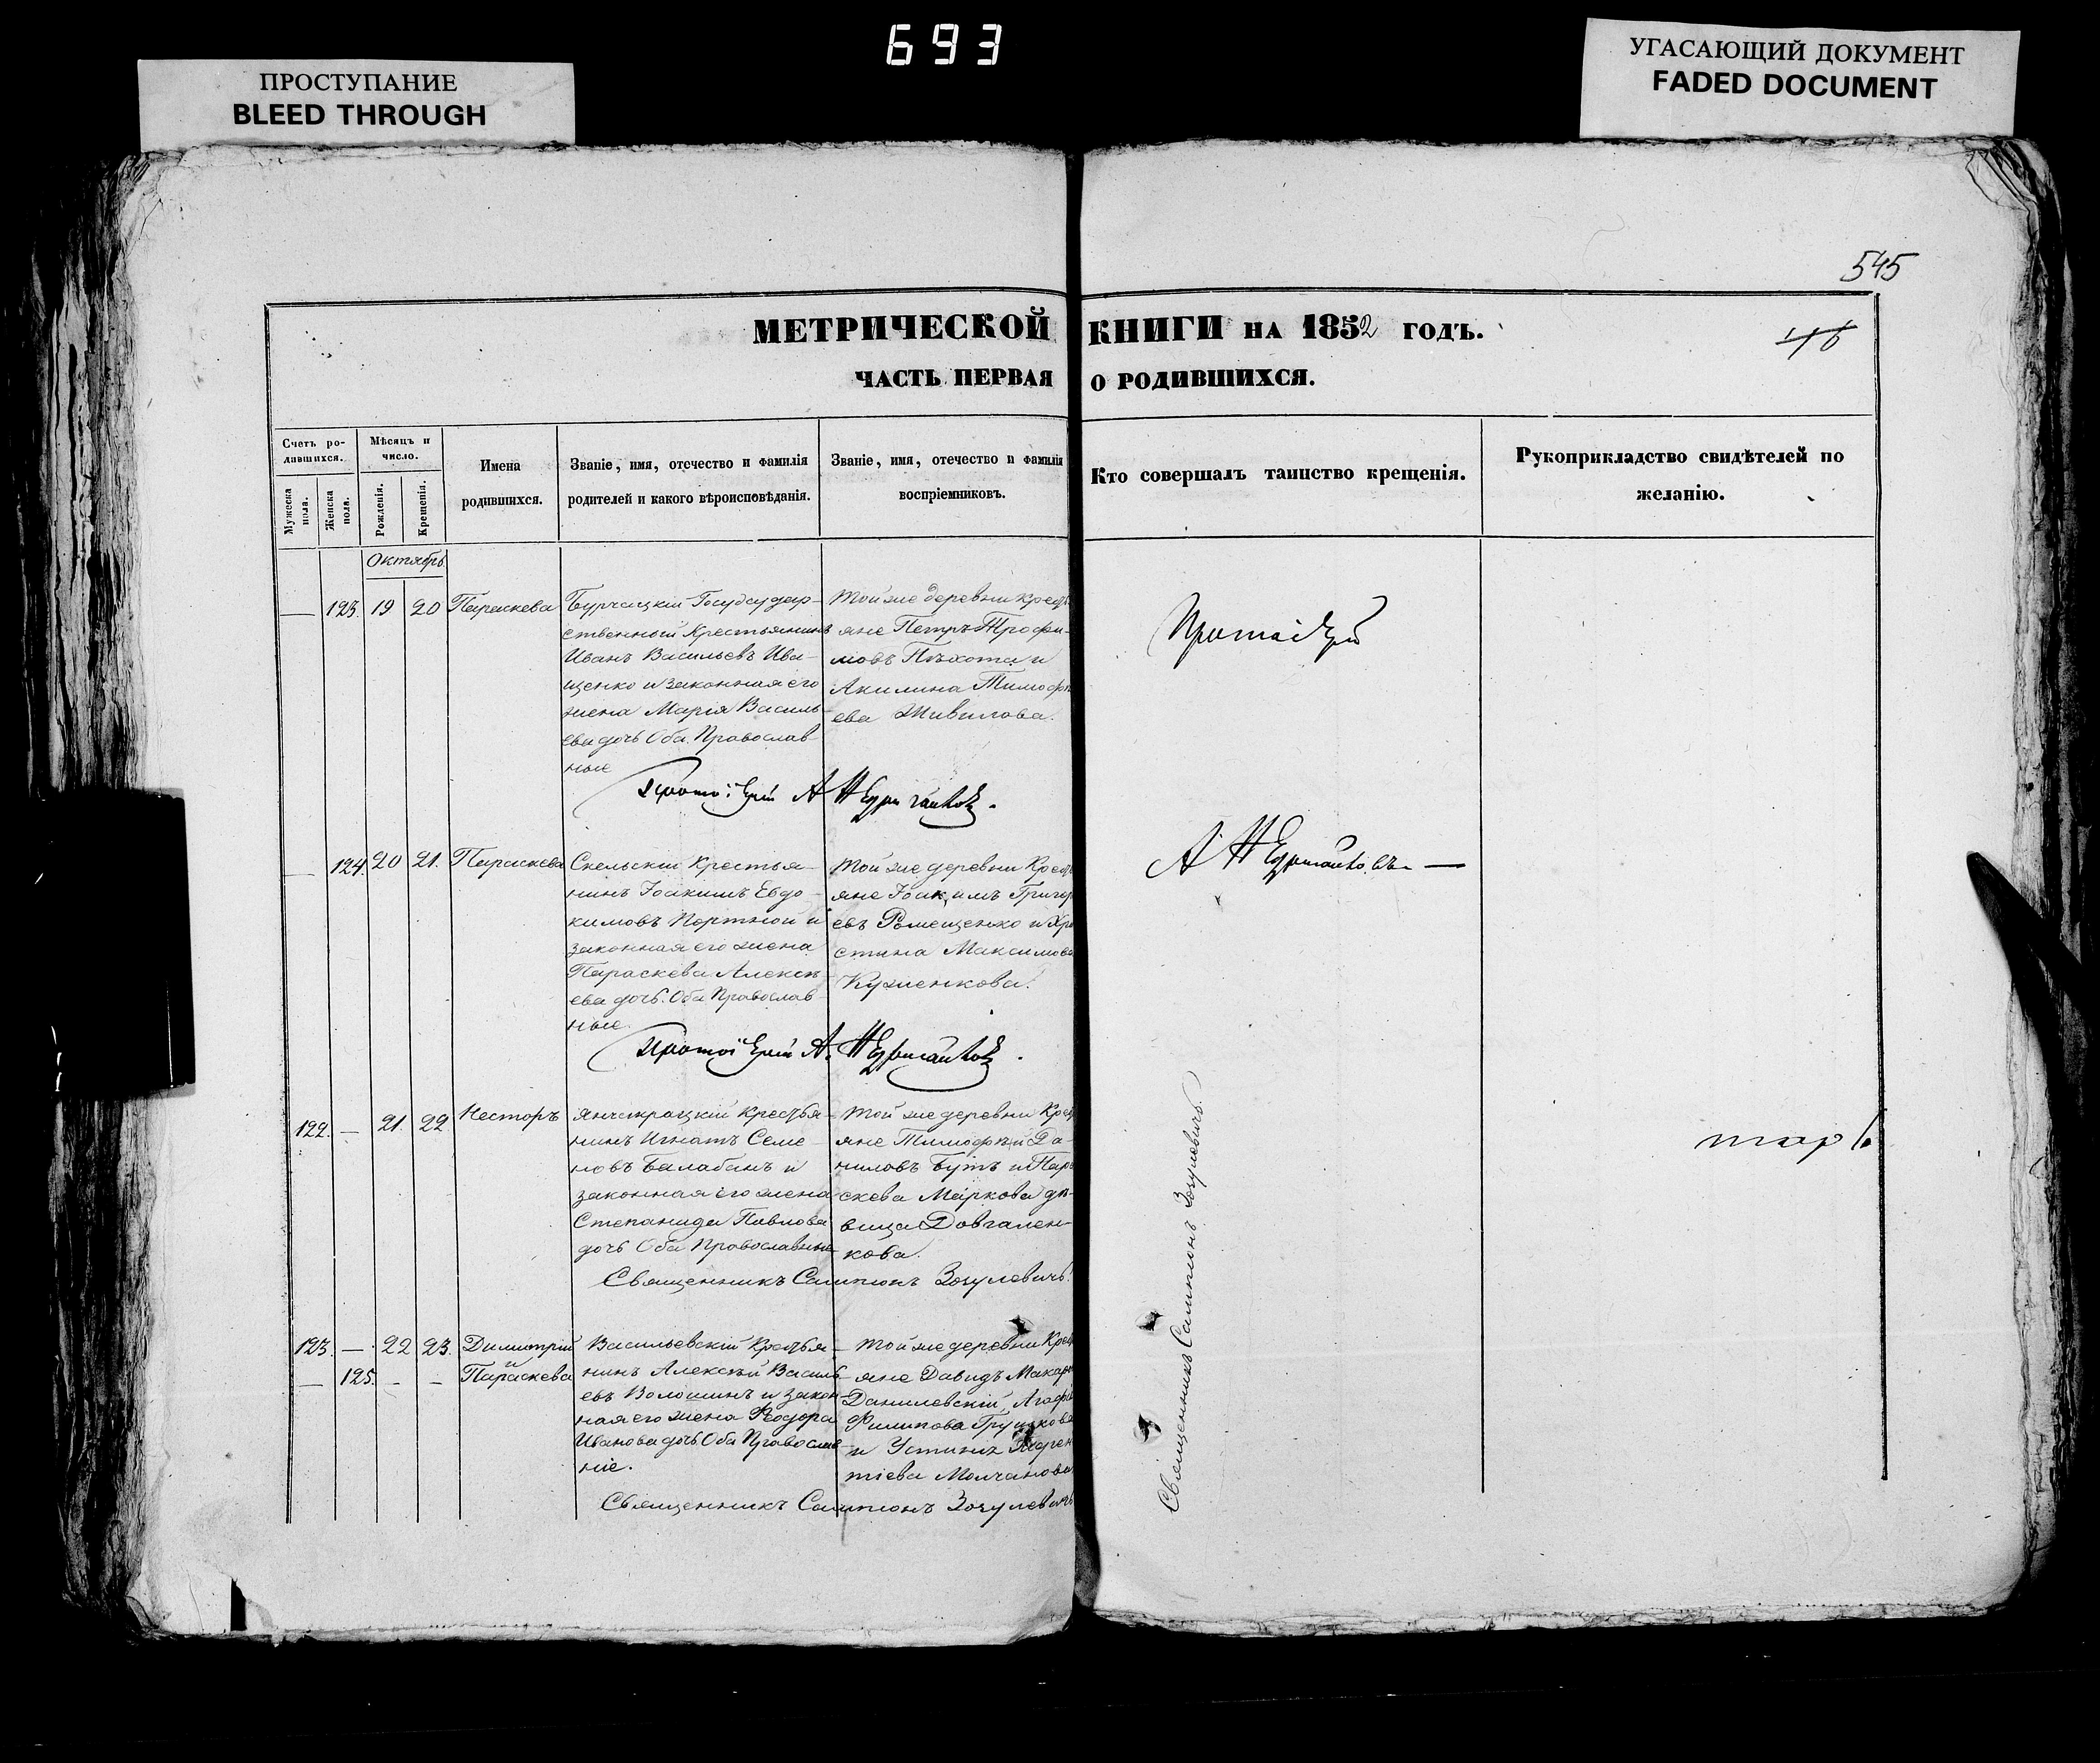 693
ПРОСТУПАНИЕ
BLEED THROUGH
УГАСАЮЩИЙ ДОКУМЕНТ
FADED DOCUMENT
545
МЕТРИЧЕСКОЙ КНИГИ НА 1852 ГОДЪ.
46
ЧАСТЬ ПЕРВАЯ О РОДИВШИХСЯ.
Счетъ ро-
дившихся.
Мужеска пола.
Женска пола.
Мѣсяцъ и
число.
Рожденія.
Крещенія.
Имена
родившихся.
Званіе, имя, отечество и фамилія
родителей и какого вѣроисповѣданія.
Званіе, имя, отечество и фамилія
воспріемниковъ.
Кто совершалъ таинство крещенія.
Рукоприкладство свидѣтелей по
желанію.
Октябрь
— 123. 19 20 Параскева
Бурчацкій Государ-
ственный Крестьянинъ
Иванъ Васильевъ Ива-
щенко и законная его
жена Марія Василь-
ева дочь Оба Православ-
ные
Той же деревни Кресть
яне Петръ Трофи-
мовъ Пѣхота и
Акилина Тимофѣ
ева Живилова.
Протоіерей А
Протоіерей
А
— 124. 20 21. Параскева
Скельскій Крестья-
нинъ Іоакимъ Евдо-
кимовъ Портной и
законная его жена
Параскева Алексѣ-
ева дочь. Оба Православ-
ные.
Той же деревни Кресть
яне Іоакимъ Григор
евъ Ромещенко и Хри
стина Максимова
Кузменкова.
Протоіерей А.
122. — 21. 22. Несторъ
Янчекрацкій Крестья-
нинъ Игнатъ Семе-
новъ Балабанъ и
законная его жена
Степанида Павлова
дочь Оба Православные
Той же деревни Крест
яне Тимофѣй Да-
ниловъ Бутъ и Пара
скева Маркова дѣ-
вица Довгален-
кова.
Священникъ Сампсонъ Зозулевичъ.
123. — 22 23. Димитрій
и
— 125. — — Параскева
Васильевскій Крестья-
нинъ Алексѣй Василь-
евъ Волошинъ и закон-
ная его жена Ѳеодора
Иванова дочь Оба Православ-
ніе.
Той же деревни Крест
яне Давидъ Макар
Данилевскій, Агафі
Филипова Грушкова
и Устинія
тіева Молчанова
Священникъ Сампсонъ Зозулевичъ
Священникъ Сампсонъ Зозулевичъ.